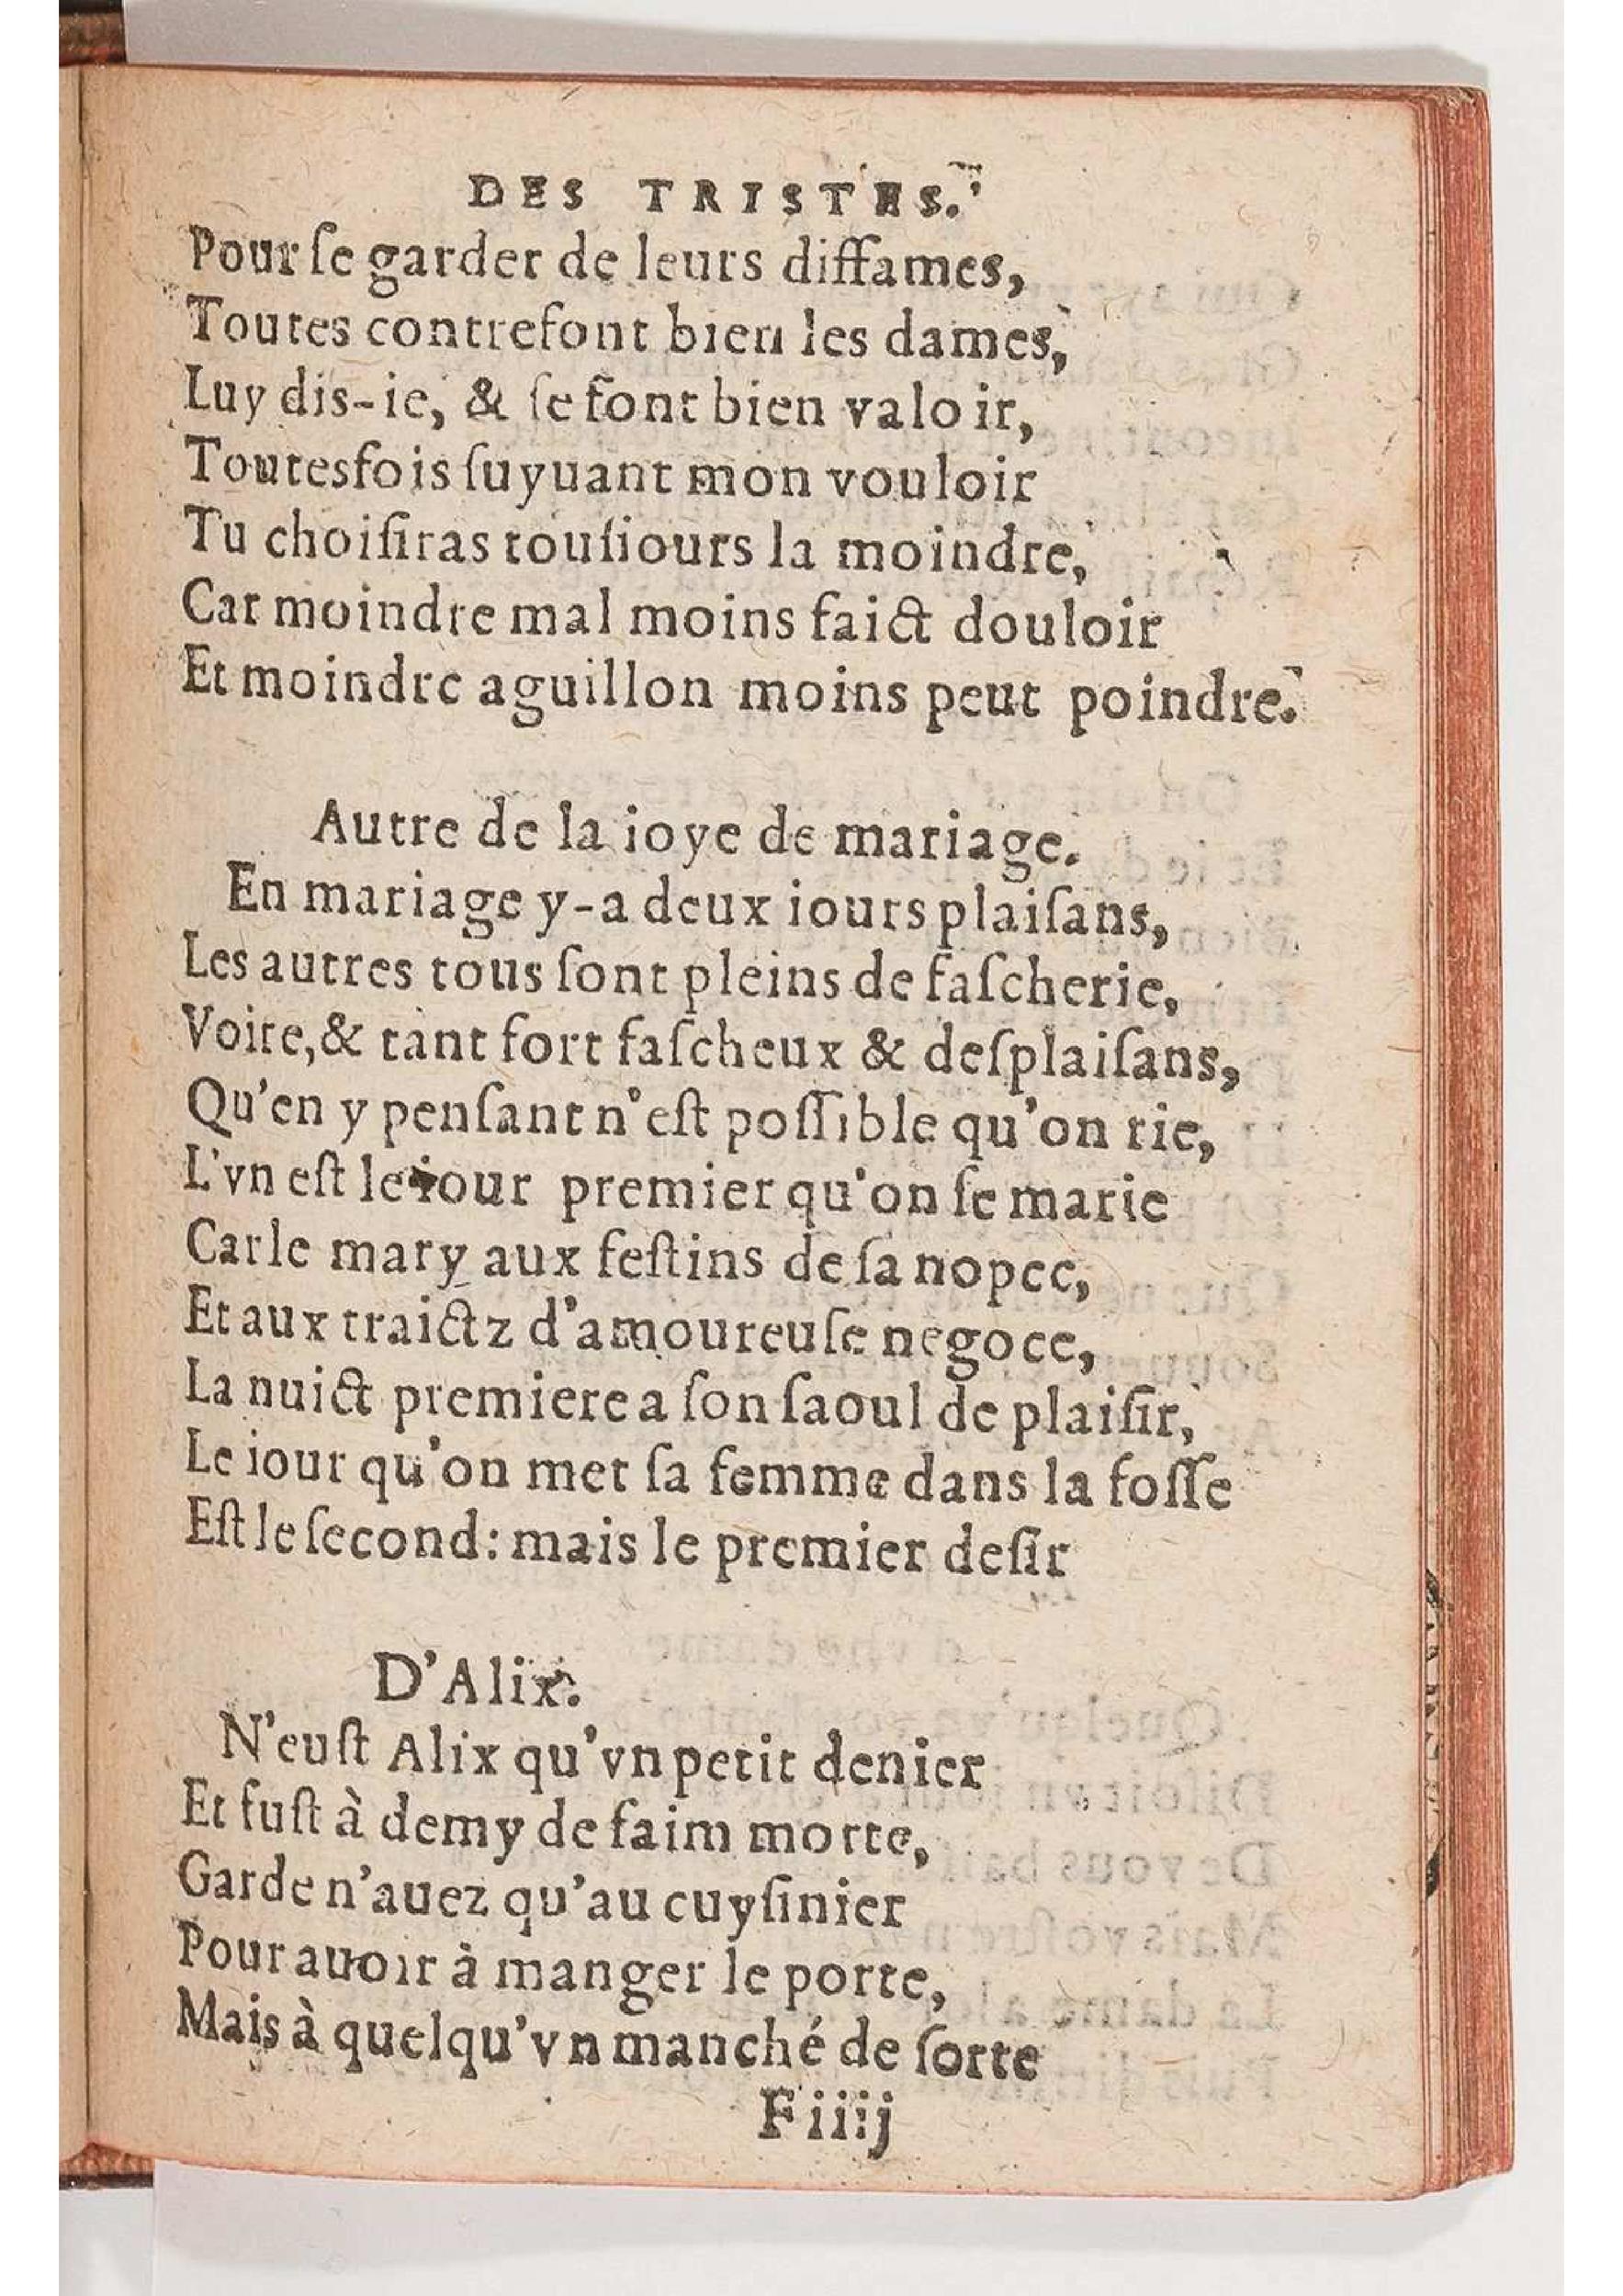 DES TRISTES.
Pour ſe garder de leurs diffames,
Toutes contrefont bien les dames,
Luy dis-ie, & ſe font bien valoir,
Toutesfois ſuyuant mon vouloir
Tu choiſiras touſiours la moindre,
Car moindre mal moins faict douloir
Et moindre aguillon moins peut poindre.
Autre de la ioye de mariage.
En mariage y-a deux iours plaiſans,
Les autres tous ſont pleins de faſcherie,
Voire, & tant fort faſcheux & deſplaiſans,
Qu'en y penſant n'eſt poſſible qu'on rie,
L'vn eſt le iour premier qu'on ſe marie
Car le mary aux feſtins de ſa nopce,
Et aux traictz d'amoureuſe negoce,
La nuict premiere a ſon ſaoul de plaiſir,
Le iour qu'on met ſa femme dans la foſſe
Eſt le ſecond: mais le premier deſir
D'Alix.
N'euſt Alix qu'vn petit denier
Et fuſt à demy de faim morte,
Garde n'auez qu'au cuyſinier
Pour auoir à manger le porte,
Mais à quelqu'vn manché de ſorte
F iiij